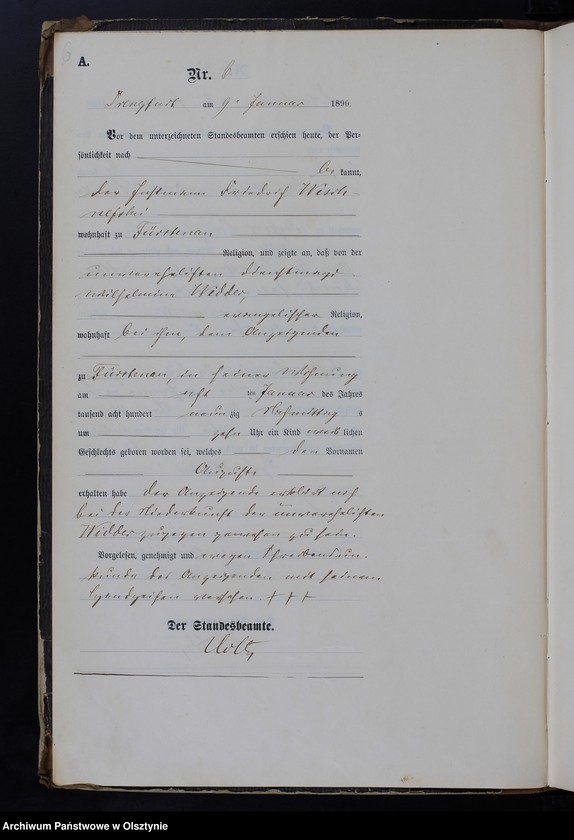 6
A.
Nr. 6
Drengfurt am 9ten Januar 1890.
Vor dem unterzeichneten Standesbeamten erschien heute, der Per-
sönlichkeit nach
be kannt,
der Instmann Friedrich Wisch-
nefski
wohnhaft zu Fürstenau
Religion, und zeigte an, daß von der
unverehelichten Dienstmagd
Wilhelmine Widder,
evangelischer Religion,
wohnhaft bei ihm, dem Anzeigenden
zu Fürstenau, in seiner Wohnung
am acht ten Januar des Jahres
tausend acht hundert neun zig Nachmittag s
um zehn Uhr ein Kind weib lichen
Geschlechts geboren worden sei, welches den Vornamen
Auguste
erhalten habe Der Anzeigende erklärt noch
bei der Niederkunft der unverehelichten
Widder zugegen gewesen zu sein.
Vorgelesen, genehmigt und wegen Schreibensun-
kunde des Anzeigenden mit seinem
Handzeichen versehen. + + +
Der Standesbeamte.
Archiwum Państwowe w Olsztynie